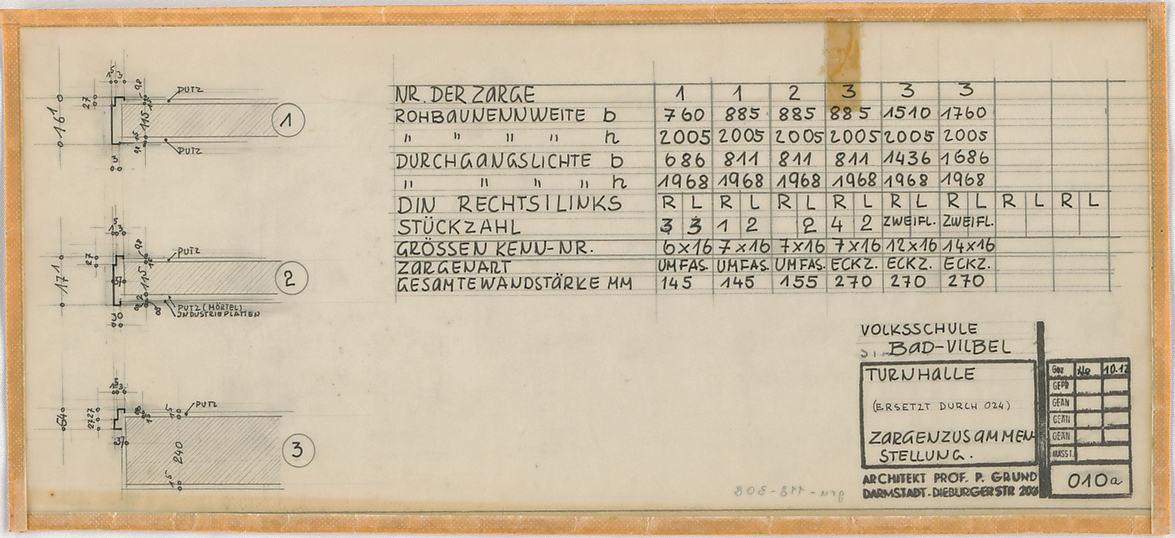 NR. DER ZARGE 1 1 2 3 3 3
ROHBAUNENNWEITE b 760 885 885 885 1510 1760
" " " " h 2005 2005 2005 2005 2005 2005
DURCHGANGSLICHTE b 686 811 811 811 1436 1686
" " " " h 1968 1968 1968 1968 1968 1968
DIN RECHTS|LINKS R L R L R L R L R L R L R L R L
STÜCKZAHL 3 3 1 2 2 4 2 ZWEIFL. ZWEIFL.
GRÖSSEN KENN-NR. 6×16 7×16 7×16 7×16 12×16 14×16
ZARGENART UMFAS. UMFAS. UMFAS. ECKZ. ECKZ. ECKZ.
GESAMTEWANDSTÄRKE MM 145 145 155 270 270 270
PUTZ
27
161
115
1
PUTZ
PUTZ
27
171
115
2
PUTZ (MÖRTEL)
INDUSTRIEPLATTEN
30
PUTZ
64
27 27
37
240
3
VOLKSSCHULE
BAD-VILBEL
TURNHALLE
(ERSETZT DURCH 024)
ZARGENZUSAMMEN
STELLUNG.
ARCHITEKT PROF. P. GRUND
DARMSTADT-DIEBURGERSTR
GEZ 10.12
GEPR
GEÄN
GEÄN
GEÄN
MASST.
010a
gru-118-308